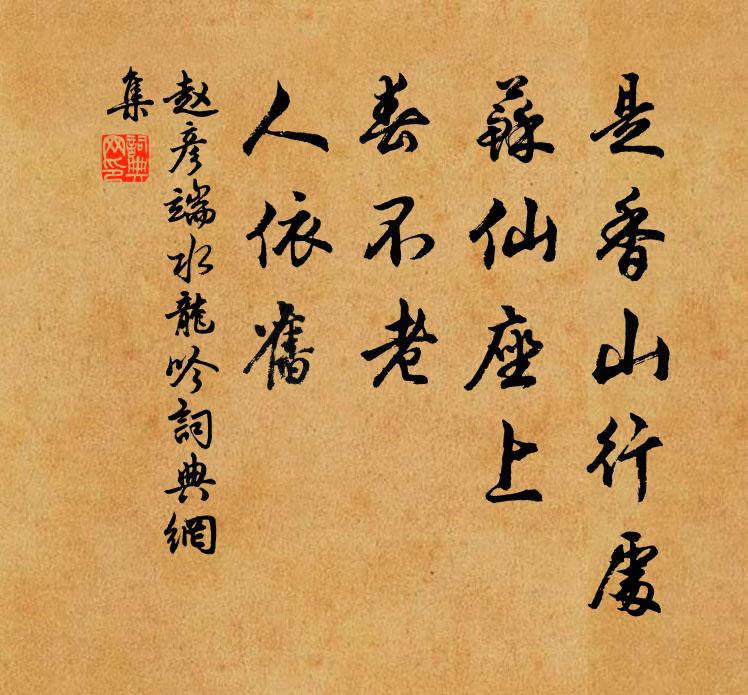 是香山行處
蘇仙座上
春不老
人依舊
赵彦端水龍吟詞典網
集
詞典
网印